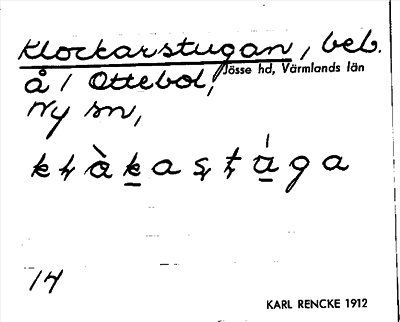 Klockarstugan, beb.
å 1 Ottebol,
Jösse hd, Värmlands län
Ny sn,
14
KARL RENCKE 1912